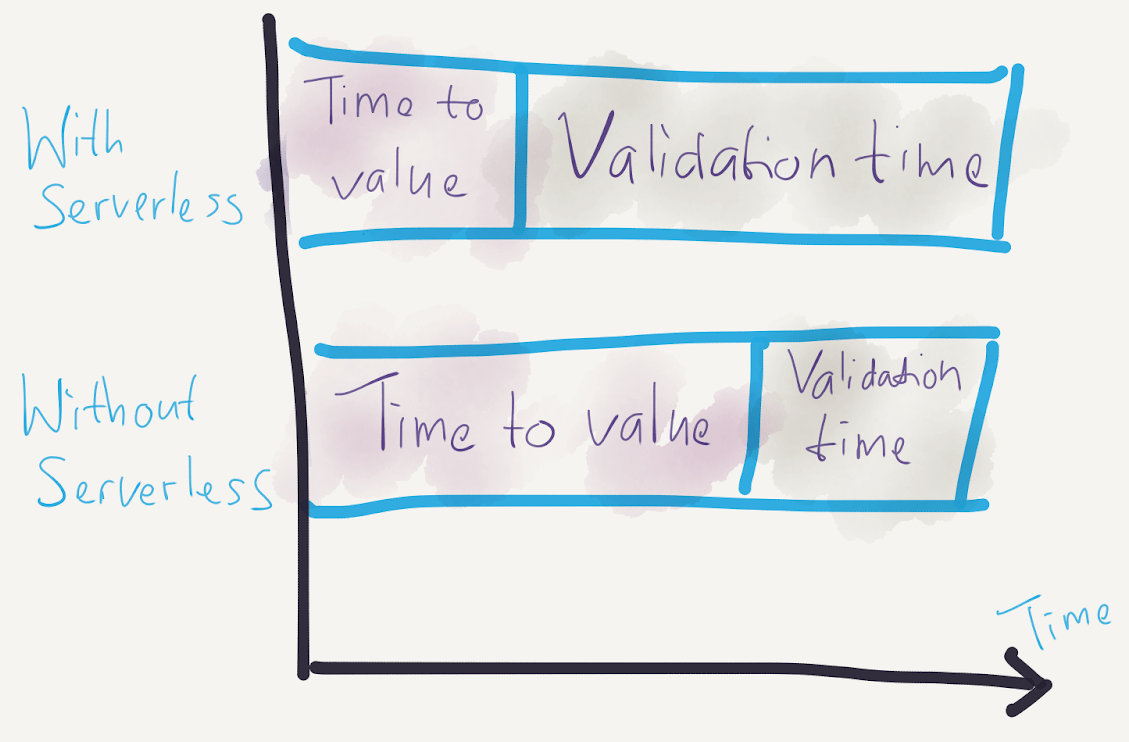 With
Serverless
Time to
value
Validation time
Without
Serverless
Time to value
Validation
time
Time